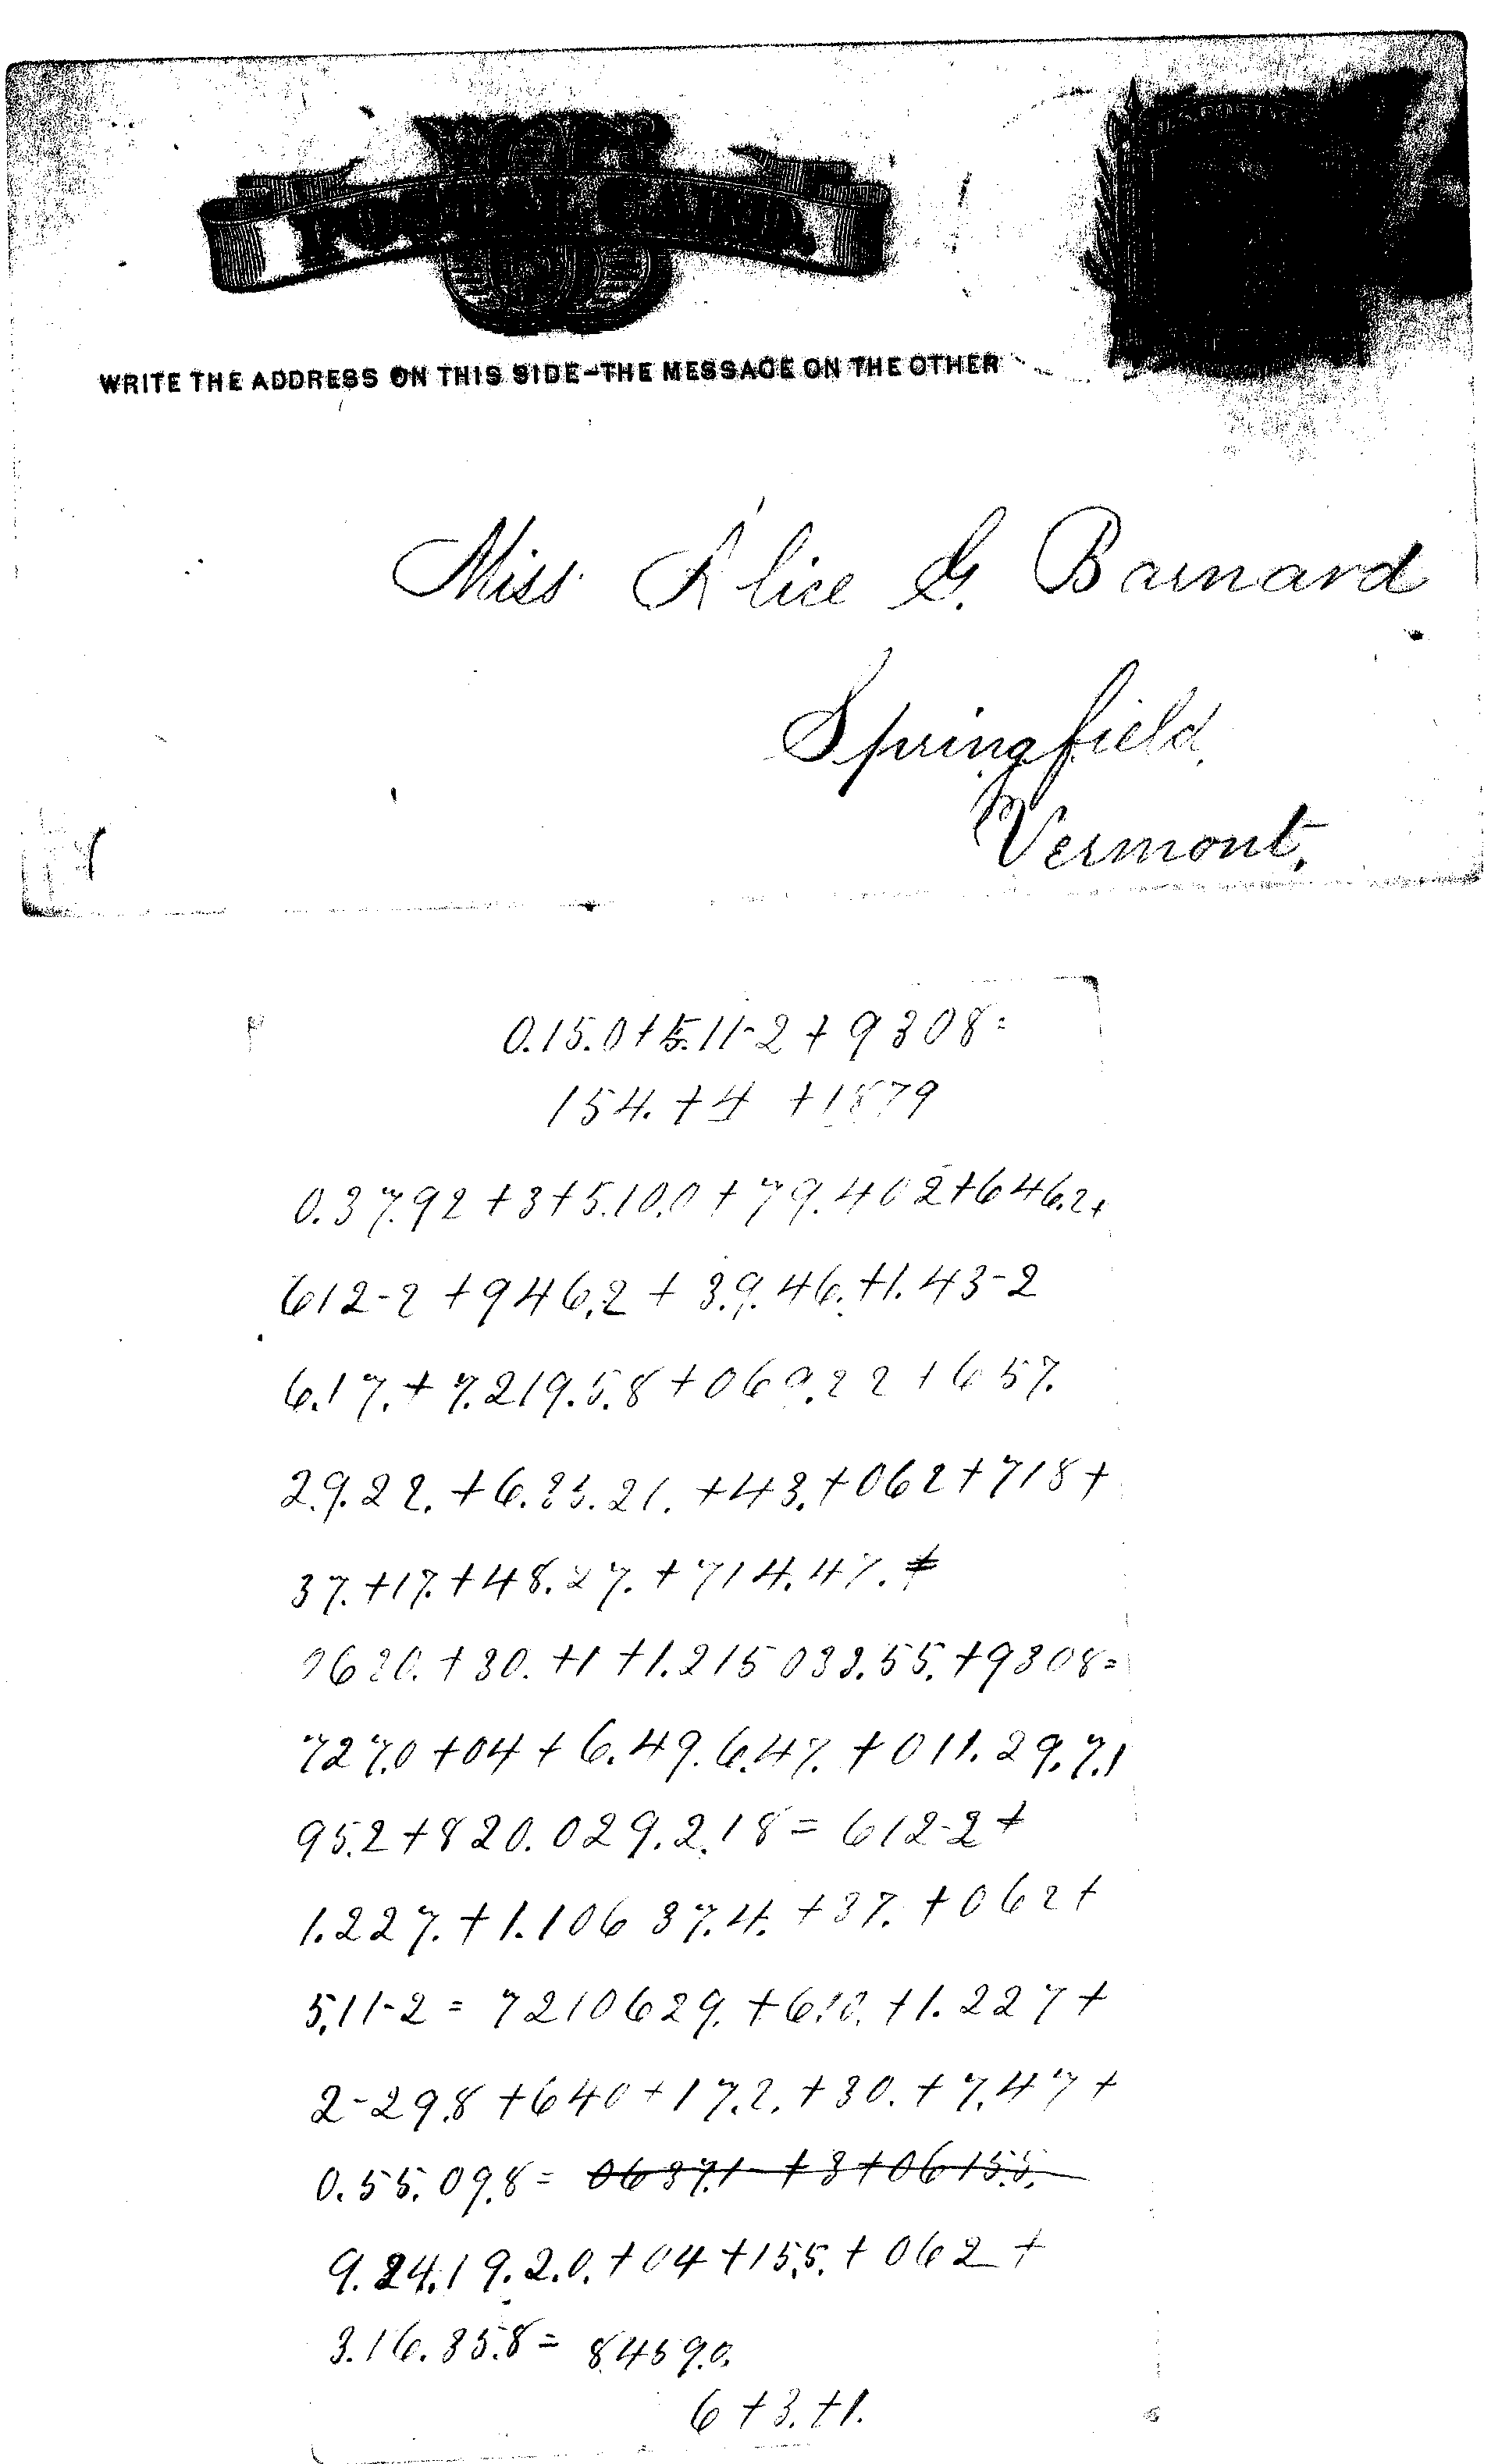 POSTAL CARD.
WRITE THE ADDRESS ON THIS SIDE-THE MESSAGE ON THE OTHER
Miss Alice G. Barnard
Springfield,
Vermont,
0.15.0+5.11-2+9308=
154.+4 +1879
0.37.92+3+5.10.0+79.402+646.2+
612-2+946.2+3.9.46.+1.43-2
6.17.+7.219.5.8+069.22+657.
2.9.22.+6.35.21.+43.+062+718+
37.+17.+48.27.+714.47.+
0630.+30.+1+1.215032.55.+9308=
727.0+04+6.49.6.47.+011.29.7.1
95.2+820.029.2.18=612-2+
1.227.+1.10637.4.+37.+062+
5.11-2=7210629.+610.+1.227+
2-29.8+640+17.2.+30.+7.47+
0.55.09.8= 0637.1+3+06155.
9.24.19.2.0.+04+15.5.+062+
3.16.35.8= 8459.0.
6+3.+1.